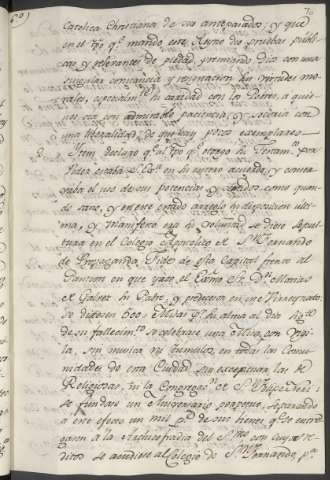 Catolica Christiana de sus antepasados; y que
en el tpō qᵉ mandó este Reyno dio pruebas publi-
cas, y relevantes de piedad, premiando Dios con una
singular constancia y resignacion sus virtudes mo-
rales, especialmᵗᵉ la caridad con los Pobres, a quie-
nes oia con admirable paciencia, y socorria con
una liberalidad, de que hay pocos exemplares.
Item declaro qᵉ al tpō qᵉ otorgó su Testamᵗᵒ por
Fides estaba S. Exᵃ en su entero acuerdo, y conser-
vaba el uso de sus potencias y sentidos como quan-
do sano, y en este estado arregló su disposicion ulti-
ma, y manifestó era su voluntad se diese sepul-
tura en el Colegio Appostolico de Sⁿ Fernando
de Propaganda Fide de esta Capital frente al
Panteon en que yace el Exmō Sʳ Dⁿ Matias
de Galvez su Padre, y predecesor en este Vireynato:
Se dixesen 600 Misas pʳ su alma al dia sigᵗᵉ
de su fallecimᵗᵒ: se celebrase una Misa con Vigi-
lia, sin musica ni tumulos en todas las Comu-
nidades de esta Ciudad sin exceptuar las de
Religiosas, ni la Congregⁿ de Sⁿ Felipe Neri:
se fundase un Aniversario perpetuo, separando
a este efecto un mil pˢ de sus bienes qᵉ se entre-
gasen a la Archicofradia del SSᵐᵒ con cuyos re-
ditos se acudiese al Colegio de Sⁿ Fernando, pᵃ